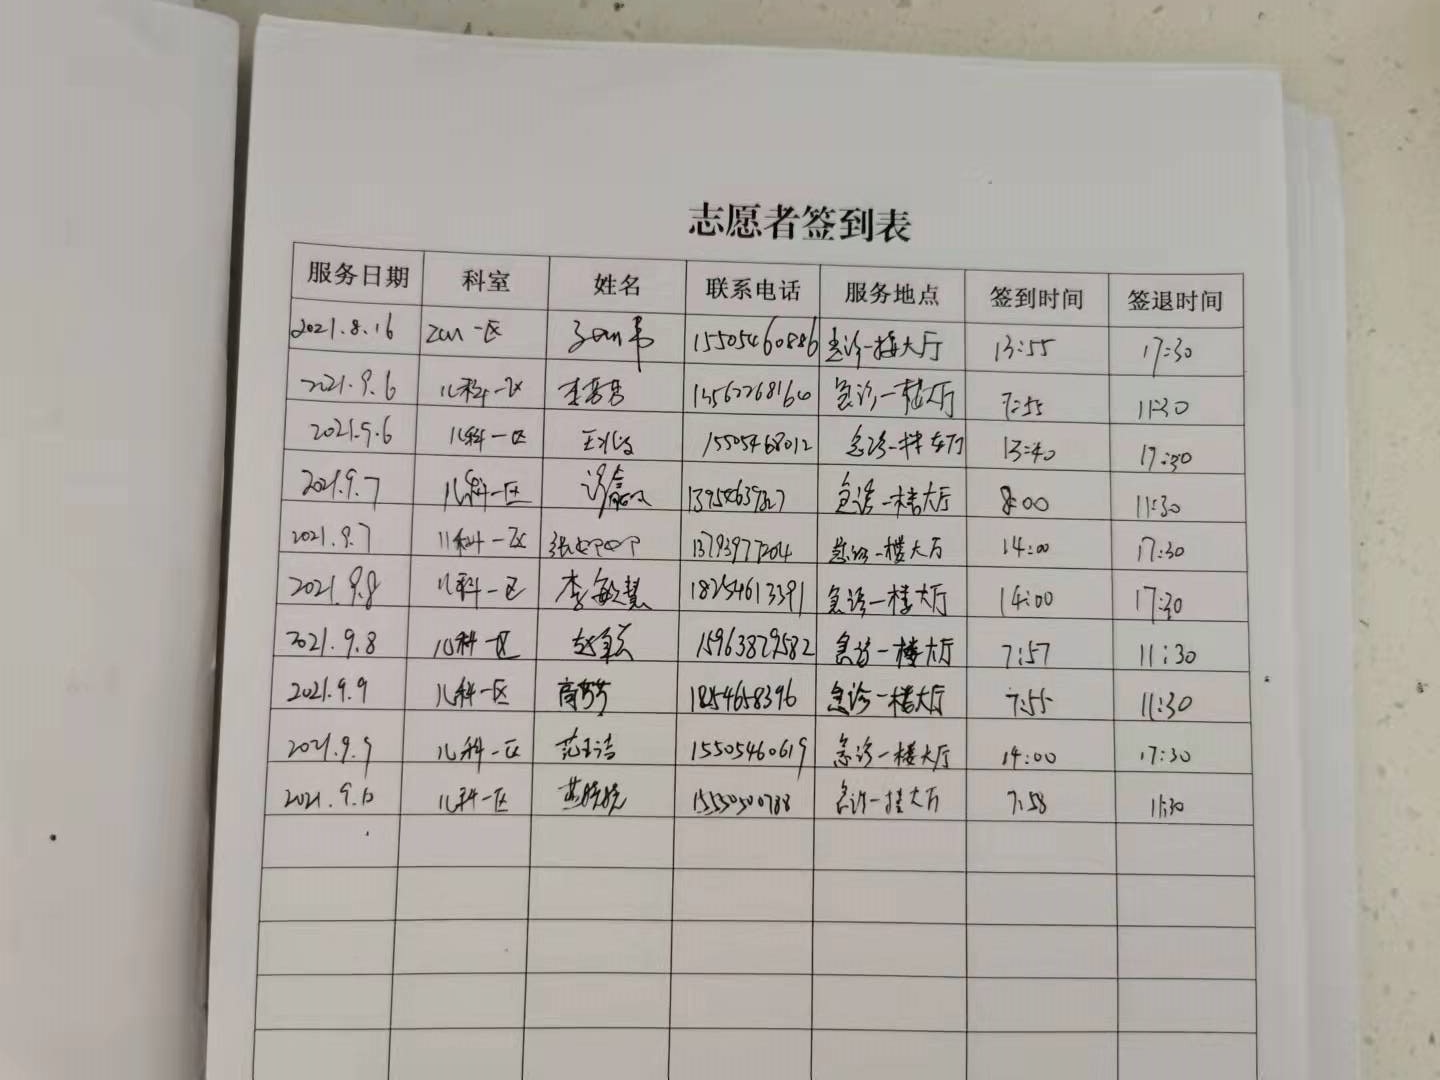 志愿者签到表
服务日期 科室 姓名 联系电话 服务地点 签到时间 签退时间
2021.8.16 一区 15505460886 急诊一楼大厅 13:55 17:30
2021.9.6 儿科一区 13562268164 急诊一楼大厅 7:55 11:30
2021.9.6 儿科一区 15505468012 急诊一楼大厅 13:40 17:30
2021.9.7 儿科一区 急诊一楼大厅 8:00 11:30
2021.9.7 儿科一区 13793977204 急诊一楼大厅 14:00 17:30
2021.9.8 儿科一区 李敏慧 18254613391 急诊一楼大厅 14:00 17:30
2021.9.8 儿科一区 15963879582 急诊一楼大厅 7:57 11:30
2021.9.9 儿科一区 高梦梦 1854658396 急诊一楼大厅 7:55 11:30
2021.9.9 儿科一区 范玉洁 15505460619 急诊一楼大厅 14:00 17:30
2021.9.10 儿科一区 急诊一楼大厅 7:58 11:30